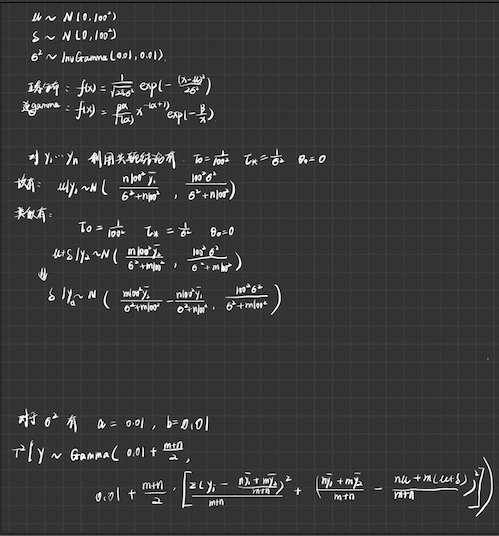 μ ~ N(0,100²)
δ ~ N(0,100²)
σ² ~ InvGamma(0.01,0.01)
正态分布: f(x) = 1/√(2πσ²) exp(-(x-μ)²/2σ²)
逆gamma: f(x) = β^α/Γ(α) x^-(α+1) exp(-β/x)
对 y₁…yₙ 利用共轭结论有. τ₀ = 1/100² τ* = 1/σ² θ₀ = 0
故有: μ|y₁ ~ N( n100²ȳ₁/(σ²+n100²) , 100²σ²/(σ²+n100²) )
类似有:
τ₀ = 1/100² τ* = 1/σ² θ₀=0
μ+δ|y₂ ~ N( m100²ȳ₂/(σ²+m100²) , 100²σ²/(σ²+m100²) )
⇓
δ|y₂ ~ N ( m100²ȳ₂/(σ²+m100²) - n100²ȳ₁/(σ²+n100²) , 100²σ²/(σ²+m100²) )
对于 σ² 有 a = 0.01 , b = 0.01
τ²|y ~ Gamma( 0.01 + (m+n)/2 ,
0.01 + (m+n)/2 · [ Σ(yᵢ - (nȳ₁+mȳ₂)/(m+n))²/(m+n) + ( (nȳ₁+mȳ₂)/(m+n) - (nμ+m(μ+δ))/(m+n) )² ] )